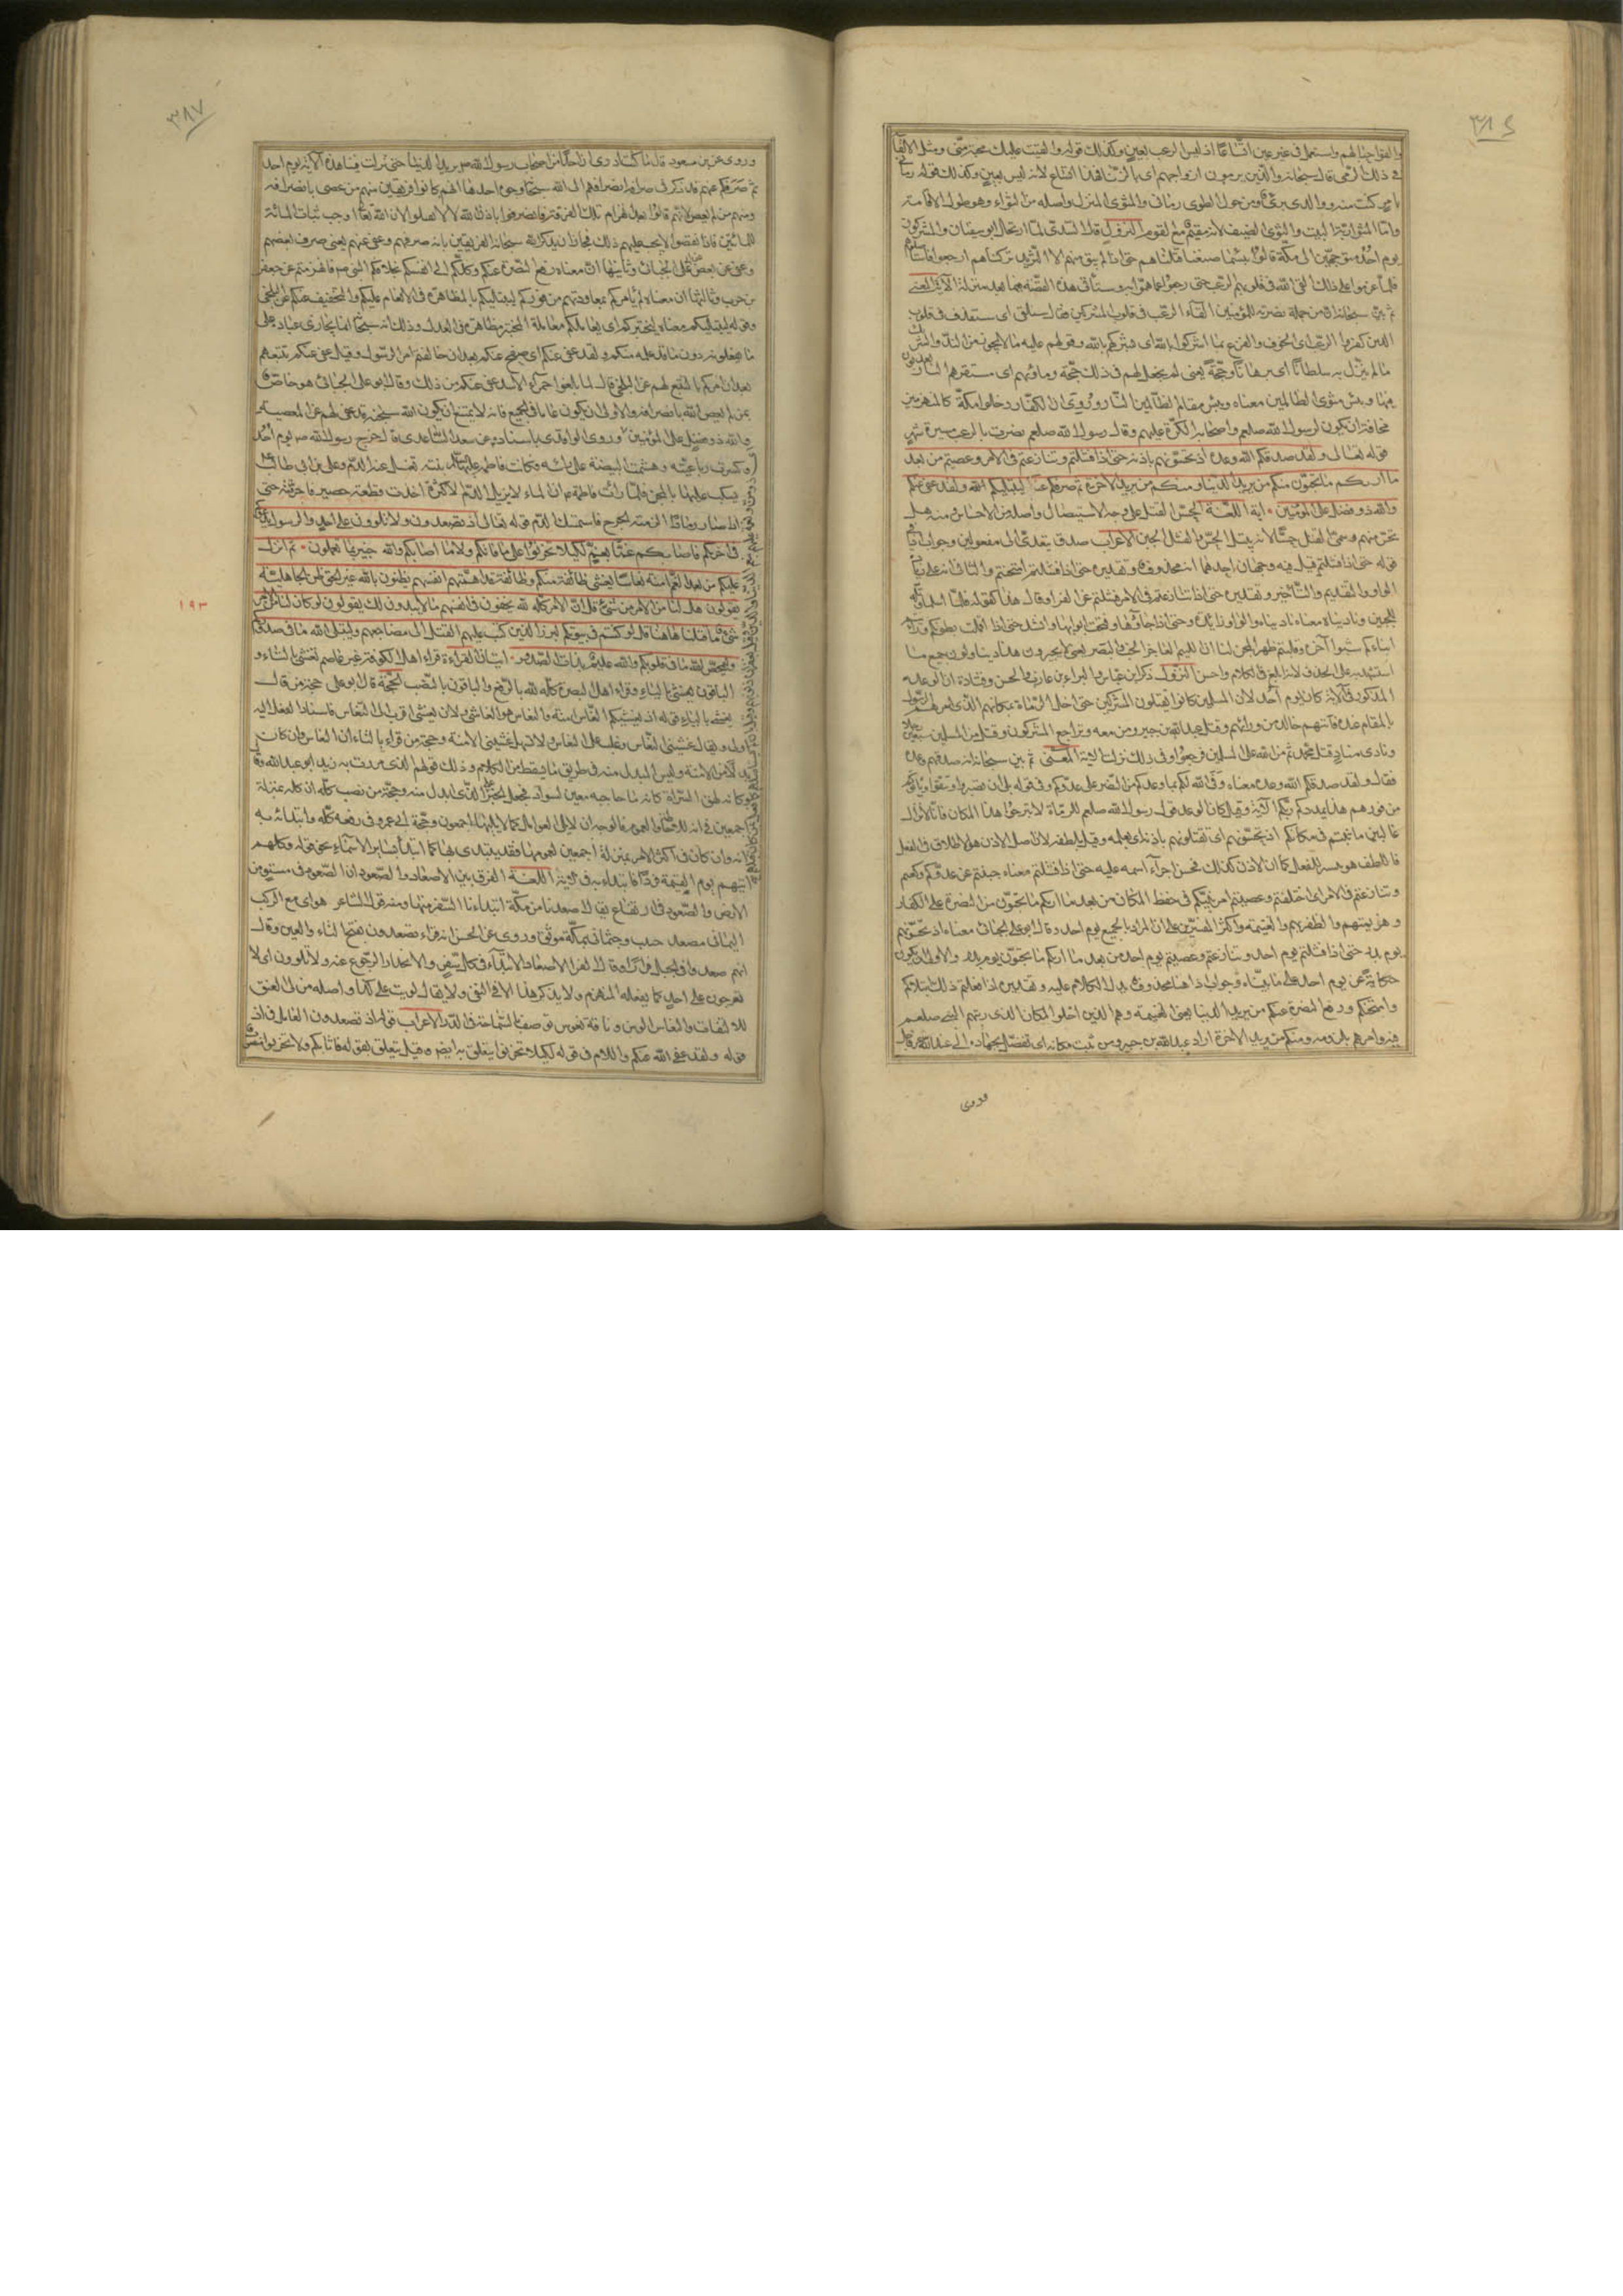 والقوا حبالهم واستعمل في غير عين اتساعا اذ ليس الرعب بعين وكذلك قوله والقيت عليك محبة مني ومثل الالقاء
في ذلك الرمي قال سبحانه والذين يرمون ازواجهم اي بالزنا فهذا اتساع لانه ليس بعين وكذلك قوله رماني
بامر كنت منه ووالدي بريئا ومن جول الطوي رماني والمثوى المنزل واصله من الثواء وهو طول الاقامة
وام المثوى ربة البيت والثوي الضيف لانه مقيم مع القوم النزول قال السدي لما ارتحل ابو سفيان والمشركون
يوم احد متوجهين الى مكة قالوا بئسما صنعنا قتلناهم حتى اذا لم يبق منهم الا الشريد تركناهم ارجعوا فاستاصلوهم
فلما عزموا على ذلك القى الله في قلوبهم الرعب حتى رجعوا عما هموا به وستأتي هذه القصة فيما بعد منزلة الاية المعنى
ثم بين سبحانه ان من جملة نصرته للمؤمنين القاء الرعب في قلوب المشركين فقال سنلقي اي سنقذف في قلوب
الذين كفروا الرعب اي الخوف والفزع بما اشركوا بالله اي بشركهم بالله وقولهم عليه ما لا يجوز من الند والشريك
ما لم ينزل به سلطانا اي برهانا وحجة يعني لم يجعل لهم في ذلك حجة وماويهم اي مستقرهم النار يعذبون
فيها وبئس مثوى الظالمين معناه وبئس مقام الظالمين النار وروي ان الكفار دخلوا مكة كالمنهزمين
مخافة ان يكون لرسول الله صلعم واصحابه الكرة عليهم وقال رسول الله صلعم نصرت بالرعب مسيرة شهر
قوله تعالى ولقد صدقكم الله وعده اذ تحسونهم باذنه حتى اذا فشلتم وتنازعتم في الامر وعصيتم من بعد
ما اريكم ما تحبون منكم من يريد الدنيا ومنكم من يريد الاخرة ثم صرفكم عنهم ليبتليكم الله ولقد عفى عنكم
والله ذو فضل على المؤمنين اية اللغة الحس القتل على وجه الاستيصال واصله من الاحساس ومنه هل
تحس منهم وسمي القتل حسا لانه يبطل الحس والفشل الجبن الاعراب صدق يتعدى الى مفعولين وجواب اذا في
قوله حتى اذا فشلتم قيل فيه وجهان احدهما انه محذوف وتقديره حتى اذا فشلتم امتحنتم والثاني انه على زيادة
الواو والتقديم والتأخير وتقديره حتى اذا تنازعتم في الامر فشلتم عن الفراء وقال هذا كقوله فلما اسلما وتله
للجبين وناديناه معناه ناديناه والواو زائدة وحتى اذا جاؤها وفتحت ابوابها وانشد حتى اذا قملت بطونكم ورأيتم
ابناءكم شبوا آخر وقلبتم ظهر المجن لنا ان اللئيم العاجز الخب والبصريون لا يجيزون هذا ويتأولون جميع ما
استشهد به على الحذف لانه ابلغ في الكلام واحسن النزول ذكر ابن عباس والبراء بن عازب والحسن وقتادة ان الوعد
المذكور في الاية كان يوم احد لان المسلمين كانوا يقتلون المشركين حتى اخل الرماة بمكانهم الذي امرهم الرسول
بالمقام عنده فاتاهم خالد من ورائهم وقتل عبد الله بن جبير ومن معه وتراجع المشركون وقتل من المسلمين سبعين رجلا
ونادى مناد قتل محمد ثم من الله على المسلمين فرجعوا وفي ذلك نزلت الاية المعنى ثم بين سبحانه انه صدقهم وعده
فقال ولقد صدقكم الله وعده معناه وفى الله لكم بما وعدكم من النصر على عدوكم وفي قوله بلى ان تصبروا وتتقوا ويأتوكم
من فورهم هذا يمددكم ربكم الاية وقيل كان الوعد قول رسول الله صلعم للرماة لا تبرحوا هذا المكان فانا لا نزال
غالبين ما ثبتم في مكانكم اذ تحسونهم اي تقتلونهم باذنه اي بعلمه وقيل بلطفه لان اصل الاذن هو الاطلاق في الفعل
فاللطف هو تيسير للفعل كما ان الاذن كذلك فحسن اجراء اسمه عليه حتى اذا فشلتم معناه جبنتم عن عدوكم وكععتم
وتنازعتم في الامر اي اختلفتم وعصيتم امر نبيكم في حفظ المكان من بعد ما اريكم ما تحبون من النصرة على الكفار
وهزيمتهم والظفر بهم والغنيمة واكثر المفسرين على ان المراد بالجميع يوم احد وقال ابو علي الجبائي معناه اذ تحسونهم
يوم بدر حتى اذا فشلتم يوم احد وتنازعتم وعصيتم يوم احد من بعد ما اريكم ما تحبون يوم بدر والاولى ان يكون
حكاية عن يوم احد على ما بيناه وجواب اذا هنا محذوف يدل الكلام عليه وتقديره اذا فعلتم ذلك ابتلاكم
وامتحنكم ورفع النصرة عنكم من يريد الدنيا يعني الغنيمة وهم الذين اخلوا المكان الذي رتبهم النبي صلعم
فيه وامرهم بلزومه ومنكم من يريد الاخرة اراد عبد الله بن جبير ومن ثبت مكانه اي تقصد بجهاده الى عند الله
وروى
وروي عن ابن مسعود قال ما كنت ادري ان احدا من اصحاب رسول الله صم يريد الدنيا حتى نزلت فينا هذه الاية يوم احد
ثم صرفكم عنهم قد ذكر في صرفهم انصرافهم الى الله سبحانه وجوه احدها انهم كانوا فريقين منهم من عصى بانصرافه
ومنهم من لم يعص لانهم قلوا بعد انهزام تلك الفرقة فانصرفوا باذن الله لئلا يقتلوا لان الله تعالى اوجب ثبات المائة
للمائتين فاذا نقصوا لا يجب عليهم ذلك فجاز ان يذكر الله سبحانه الفريقين بانه صرفهم وعفى عنهم يعني صرف بعضهم
وعفى عن بعض عن ابي علي الجبائي وثانيها ان معناه رفع النصرة عنكم ووكلكم الى انفسكم بخلافكم النبي صم فانهزمتم عن جعفر
بن حرب وثالثها ان معناه لم يأمركم بمعاودتهم من فوركم ليبتليكم بالمظاهرة في الانعام عليكم والتخفيف عنكم عن البلخي
وقوله ليبتليكم معناه ليختبركم اي يعاملكم معاملة المختبر مظاهرة في العدل وذلك انه سبحانه انما يجازي عباده على
ما يفعلونه دون ما قد علمه منهم ولقد عفى عنكم اي صفح عنكم بعد ان خالفتم امر الرسول وقيل عفى عنكم تتبعهم
بعد ان امركم بالتتبع لهم عن البلخي قال لما بلغوا حمراء الاسد عفى عنهم من ذلك وقال ابو علي الجبائي هو خاص
بمن لم يعص الله بانصرافه والاولى ان يكون عاما في الجميع فانه لا يمتنع ان يكون الله سبحانه قد عفى لهم عن المعصية
والله ذو فضل على المؤمنين وروى الواقدي باسناده عن سهل بن سعد الساعدي قال جرح رسول الله صم يوم احد
وكسرت رباعيته وهشمت البيضة على رأسه وكانت فاطمة عليها السلام بنته تغسل عنه الدم وعلي بن ابي طالب
يسكب عليها بالمجن فلما رأت فاطمة ع ان الماء لا يزيد الدم الا كثرة اخذت قطعة حصير فاحرقته حتى
اذا صار رمادا الزمته الجرح فاستمسك الدم قوله تعالى اذ تصعدون ولا تلوون على احد والرسول يدعوكم
في اخريكم فاثابكم غما بغم لكيلا تحزنوا على ما فاتكم ولا ما اصابكم والله خبير بما تعملون ثم انزل
عليكم من بعد الغم امنة نعاسا يغشى طائفة منكم وطائفة قد اهمتهم انفسهم يظنون بالله غير الحق ظن الجاهلية
يقولون هل لنا من الامر من شيء قل ان الامر كله لله يخفون في انفسهم ما لا يبدون لك يقولون لو كان لنا من الامر
شيء ما قتلنا هاهنا قل لو كنتم في بيوتكم لبرز الذين كتب عليهم القتل الى مضاجعهم وليبتلي الله ما في صدوركم
وليمحص الله ما في قلوبكم والله عليم بذات الصدور ايتان القراءة قراء اهل الكوفة غير عاصم تغشى بالتاء و
الباقون يغشى بالياء وقراء اهل البصرة كله لله بالرفع والباقون بالنصب الحجة قال ابو علي حجة من قال
يغشى بالياء قوله اذ يغشيكم النعاس امنة والنعاس هو الغاشي ولان يغشى اقرب الى النعاس فاسناد الفعل اليه
اولى ويقال غشيني النعاس وغلب علي النعاس ولا يسهل غشيني الامنة وحجة من قراء بالتاء ان النعاس وان كان
بدلا من الامنة وليس المبدل منه في طريق ما يسقط من الكلام وذلك قولهم الذي مررت به زيد ابو عبد الله وقال
وكانه لهق السراة كانه ما حاجبيه معين بسواد فجعل الخبر عن الذي ابدل منه وحجة من نصب كله ان كله بمنزلة
اجمعين في انه للاحاطة والعموم فالوجه ان لا يلي العوامل كما لا يليها اجمعون وحجة ابي عمرو في رفعه كله وابتدائه به
انه وان كان في اكثر الامر بمنزلة اجمعين لعمومها فقد يبتدى بها كما ابتدأ بسائر الاسماء نحو قوله وكلهم
اتيهم يوم القيمة فردا فابتداء به في الاية اللغة الفرق بين الاصعاد والصعود ان الصعود في مستو من
الارض والصعود في ارتفاع يقال اصعدنا من مكة اذا ابتدأنا السفر منها ومنه قول الشاعر هواي مع الركب
اليماني مصعد جنيب وجثماني بمكة موثق وروي عن الحسن انه قراء تصعدون بفتح التاء والعين وقال
انهم صعدوا في الجبل فرارا وقال الفراء الاصعاد الابتداء في كل سفر والانحدار الرجوع عنه ولا تلوون اي لا
تعرجون على احد كما يفعله المنهزم ولا يذكر هذا الا في النفي ولا يقال لويت على كذا واصله من لي العنق
للالتفات والنعاس الوسن وناقة نعوس توصف بالسماحة في الدر الاعراب قوله اذ تصعدون العامل في اذ
قوله ولقد عفى الله عنكم واللام في قوله لكيلا تحزنوا يتعلق به ايضا وقيل يتعلق بقوله فاثابكم ولا تحزنوا
٣٨٧
١٩٣